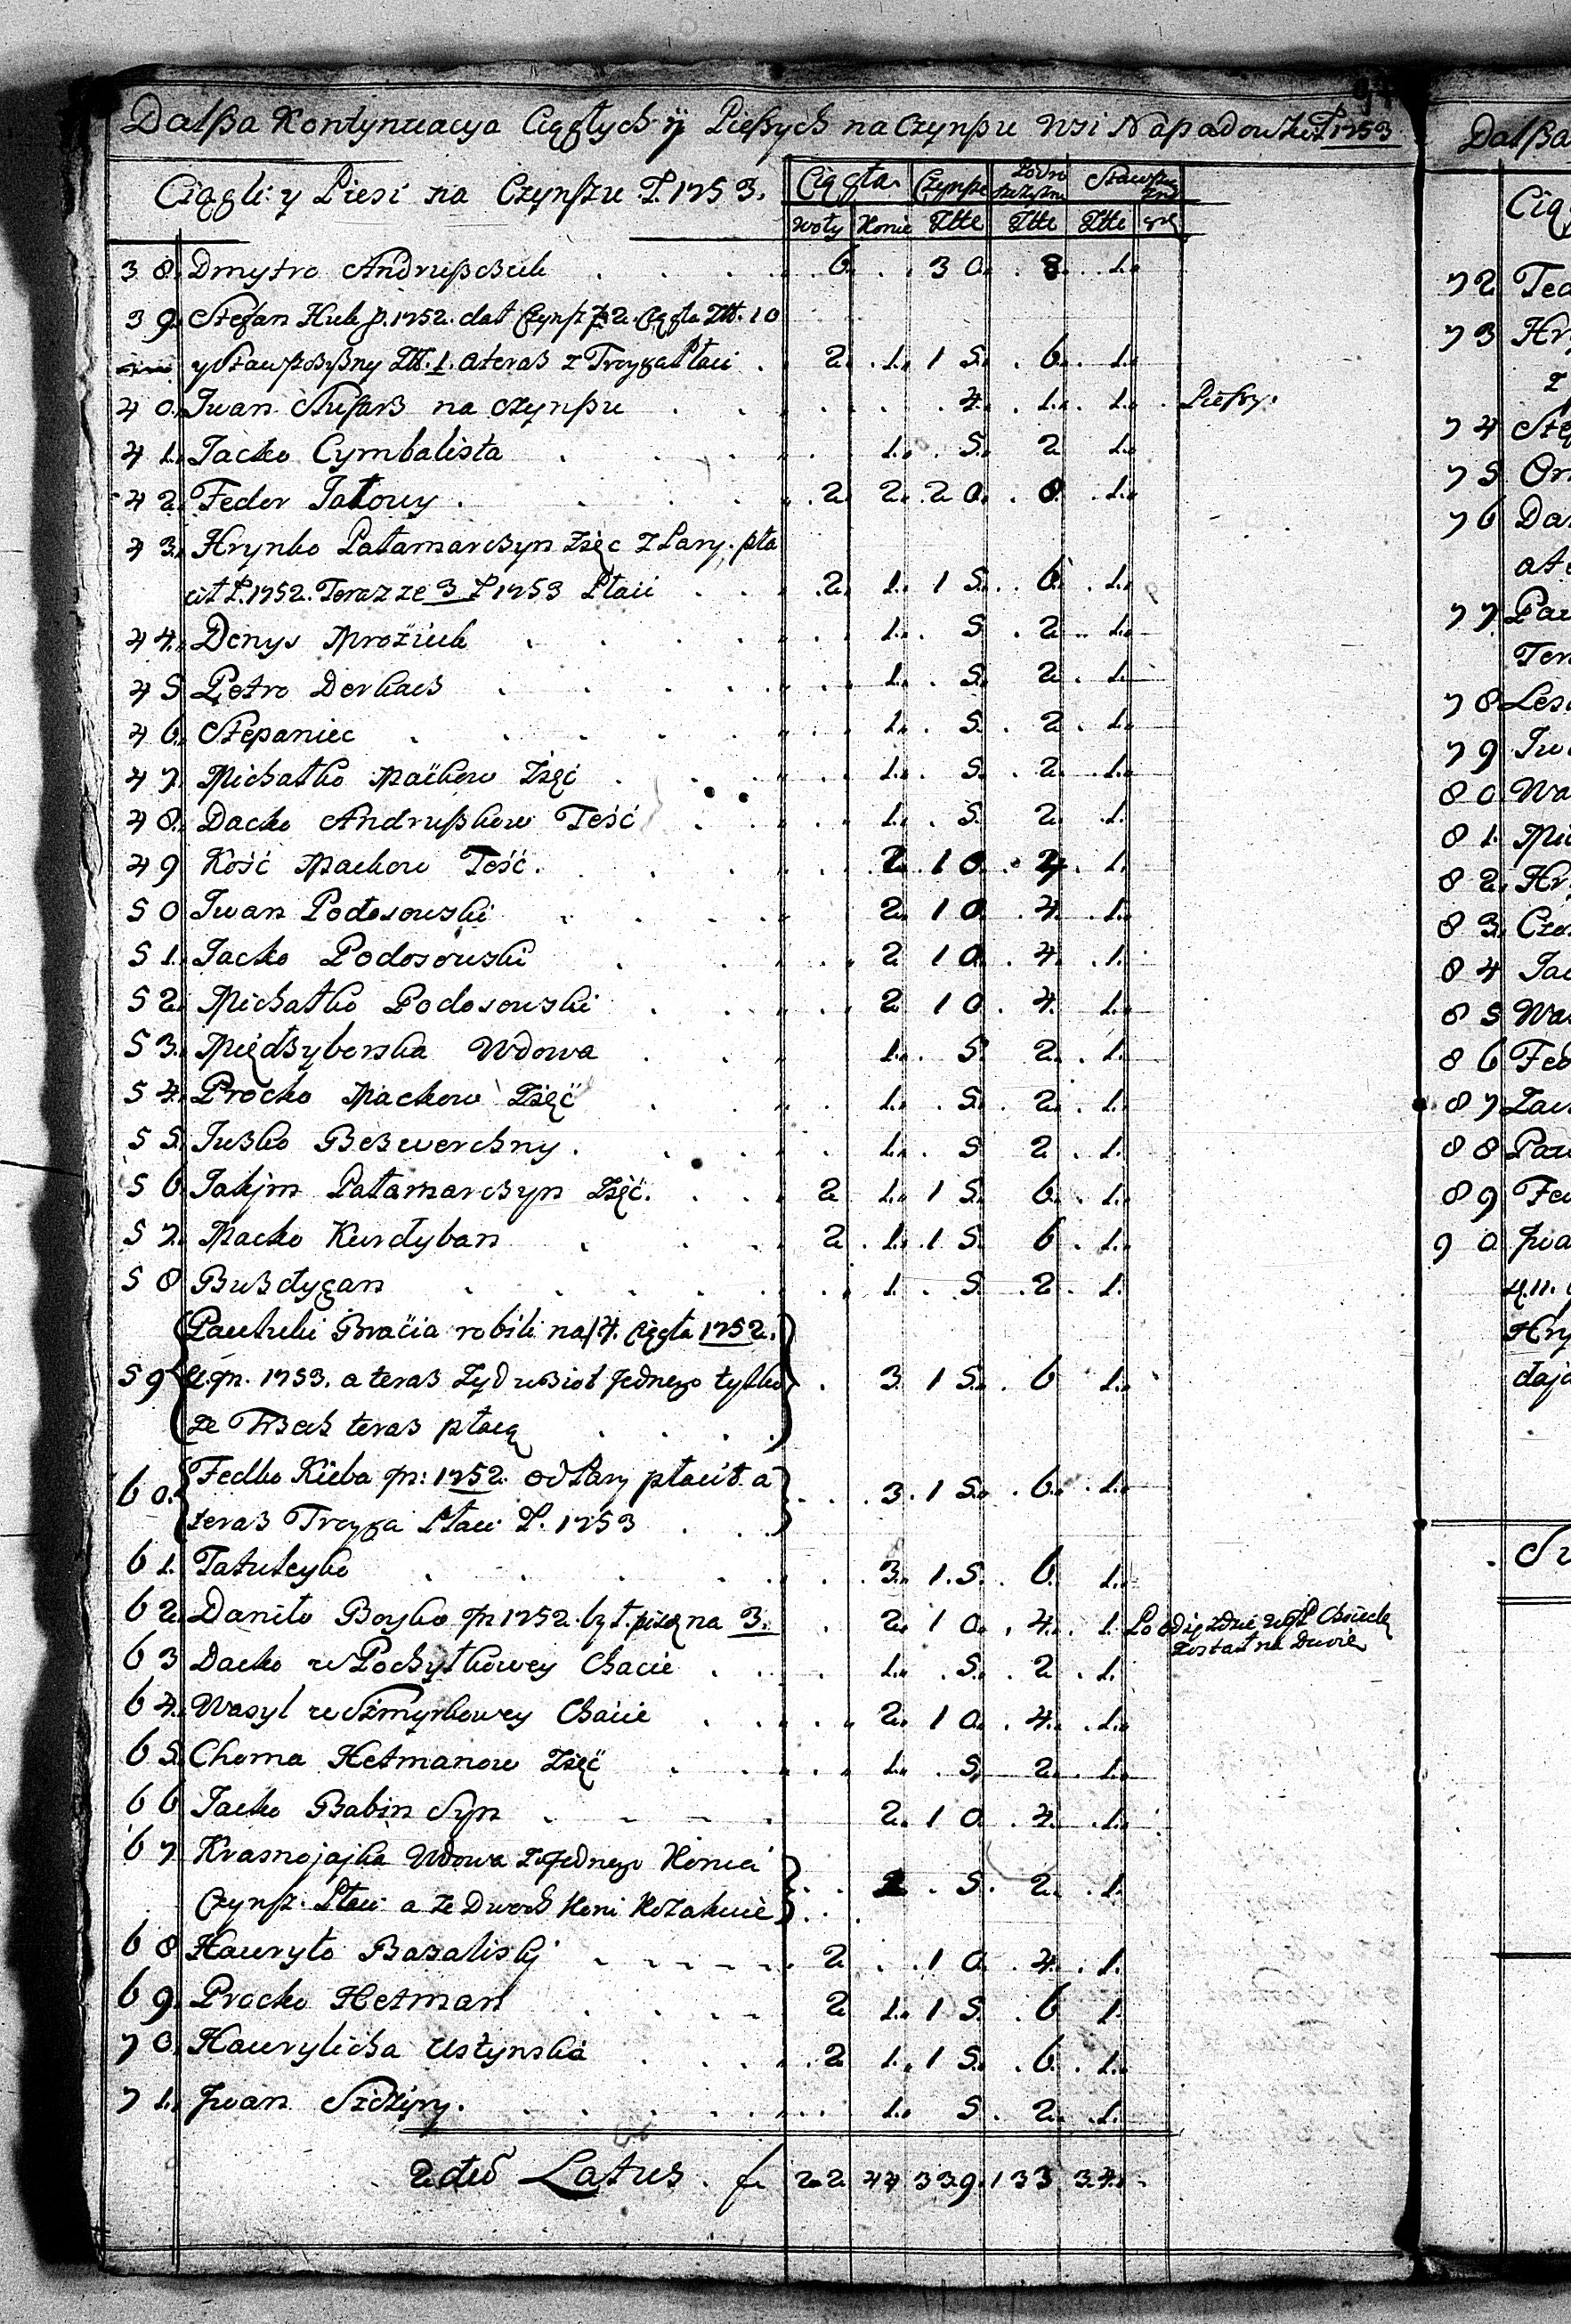 97
Dalßa Kontynuacya Ciągłych y Pießych na Czynßu Wsi Napadowki R. 1753
Ciągli y Piesi na Czynßu R. 1753. Ciągła Czynße Podro Stawſzcz
Woły Konie Złłe Złłe Złłe gr
38. Dmytro Andrußczuk 6. 30. 8. 1.
39. Stefan Huk p. 1752. dał Czynß z 2. Ciągła Złł. 10
y Stawſzczyßny Złł. 1. a teraz z Troyga Płaci 2. 1. 15. 6. 1.
40. Iwan na Czynßu 4. 1. 1. Pießy.
41. Jacko Cymbalista 1. 5. 2 1.
42. Fedor Jałowy 2 2. 20. 8. 1.
43. Hrynko Pałamarczyn Zięc z Pary pła
cił R. 1752. Teraz ze 3 R 1753 Płaci 2. 1. 15. 6. 1.
44. Denys Mroziuk 1. 5 2. 1.
45 Petro Derkacz 1. 5. 2. 1.
46. Stepaniec 1. 5. 2. 1.
47. Michałko Maćkow Zięć 1. 5. 2. 1.
48. Dacko Andrußkow Teść 1. 5. 2. 1.
49 Kość Mackow Teść. 2. 10. 4. 1.
50 Iwan Podosowski 2. 10. 4. 1.
51. Jacko Podosowski 2 10. 4. 1.
52. Michałko Podosowski 2 10. 4. 1.
53. Międzyborska Wdowa 1. 5. 2. 1.
54. Procko Mackow Zięć 1. 5. 2. 1.
55. Juzko Bezwerchny. 1. 5 2. 1.
56. Jakjm Pałamarczyn Zięć. 2 1. 15. 6. 1.
57. Macko Kurdyban 2. 1. 15. 6. 1.
58 Buzdygan 1. 5. 2. 1.
Pawluki Bracia robili na 4. Ciągła 1752.
59 1753. a teraz Zyd wzioł Jednego tylko 3. 15. 6 1.
ze Trzech teraz płacą
60. Fedko Kieba 1752. od Pary płacił a 3. 15. 6. 1.
teraz Troyga Płaci R. 1753
61. Tatulcyko 3. 15. 6. 1.
62. Daniło Boyko 1752. był pisą na 3. 2. 10. 4. 1. Po odjeździe Chciecką
został na Dwoie
63 Dacko w Pochytkowey Chacie 1. 5. 2. 1.
64. Wasyl w Szmyrkowey Chacie 2. 10. 4. 1.
65. Choma Hetmanow Zięć 1. 5. 2. 1.
66 Jacko Babin Syn 2. 10. 4. 1.
67 Krasnojajka Wdowa z Jednego Konia
Czynß. Płaci a ze Dwoch Koni Kozakuie 1 5. 2. 1.
68 Hawryło Bazaliskj 2 10. 4. 1.
69. Procko Hetman 2 1. 15. 6 1.
70. Hawrylicha Ustynska 2 1. 15. 6. 1.
71. Jwan Szczipy. 1. 5. 2. 1.
Latus. 22 44 339. 133 34.